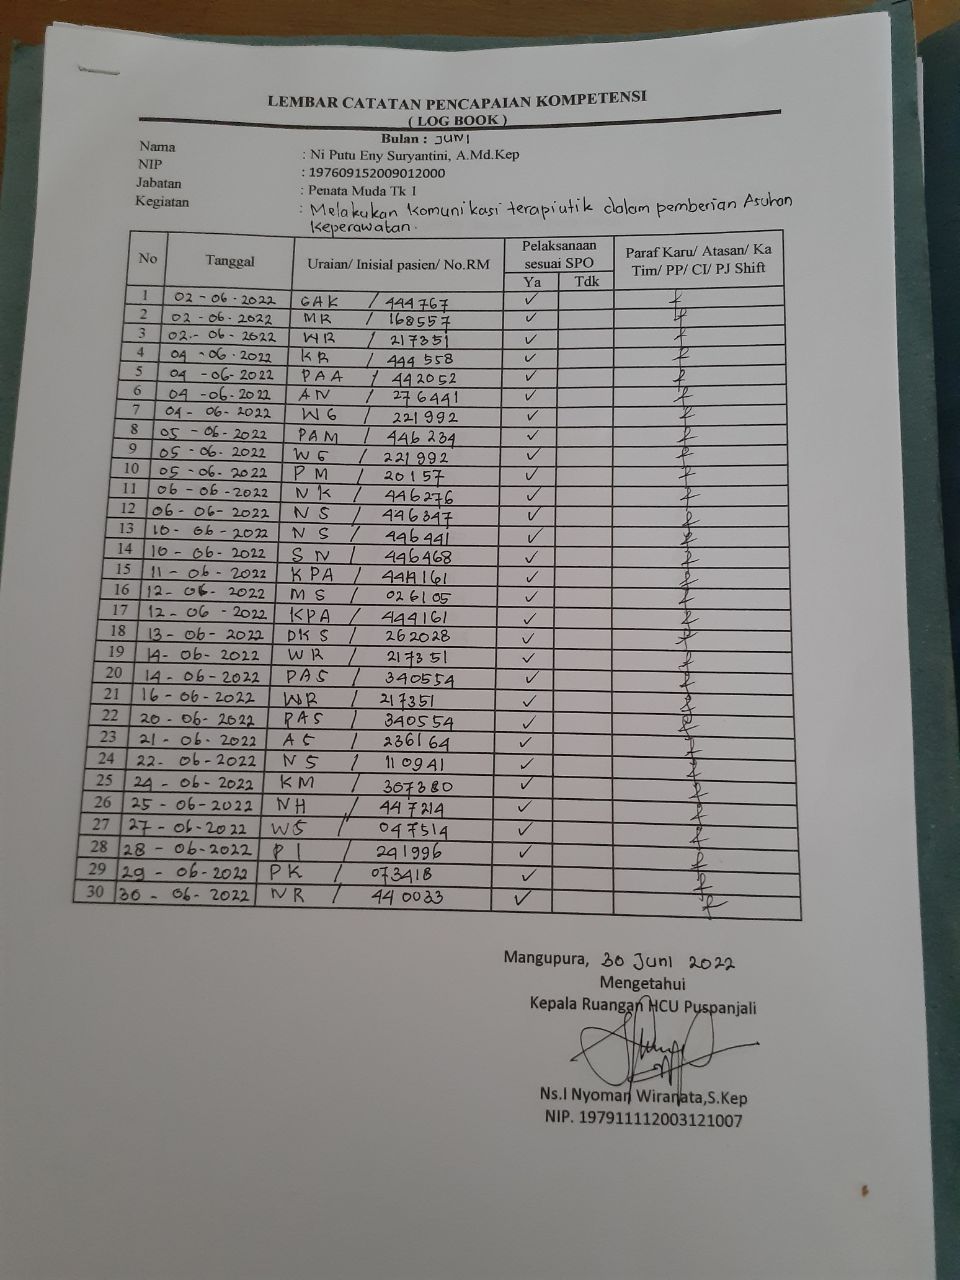 LEMBAR CATATAN PENCAPAIAN KOMPETENSI
( LOG BOOK )
Bulan : JUNI
Nama : Ni Putu Eny Suryantini, A.Md.Kep
NIP : 197609152009012000
Jabatan : Penata Muda Tk I
Kegiatan : Melakukan komunikasi terapiutik dalam pemberian Asuhan
Keperawatan.
No Tanggal Uraian/ Inisial pasien/ No.RM Pelaksanaan sesuai SPO Paraf Karu/ Atasan/ Ka Tim/ PP/ CI/ PJ Shift
Ya Tdk
1 02-06-2022 GAK / 444767 ✓
2 02-06-2022 MR / 168557 ✓
3 02-06-2022 WR / 217351 ✓
4 04-06-2022 KR / 444558 ✓
5 04-06-2022 PAA / 442052 ✓
6 04-06-2022 AN / 276441 ✓
7 04-06-2022 WG / 221992 ✓
8 05-06-2022 PAM / 446234 ✓
9 05-06-2022 WG / 221992 ✓
10 05-06-2022 PM / 20157 ✓
11 06-06-2022 NK / 446276 ✓
12 06-06-2022 NS / 446347 ✓
13 10-06-2022 NS / 446441 ✓
14 10-06-2022 SN / 446468 ✓
15 11-06-2022 KPA / 444161 ✓
16 12-06-2022 MS / 026105 ✓
17 12-06-2022 KPA / 444161 ✓
18 13-06-2022 DKS / 262028 ✓
19 14-06-2022 WR / 217351 ✓
20 14-06-2022 PAS / 340554 ✓
21 16-06-2022 WR / 217351 ✓
22 20-06-2022 PAS / 340554 ✓
23 21-06-2022 AS / 236164 ✓
24 22-06-2022 NS / 110941 ✓
25 24-06-2022 KM / 307380 ✓
26 25-06-2022 NH / 447214 ✓
27 27-06-2022 WS / 047514 ✓
28 28-06-2022 PI / 241996 ✓
29 29-06-2022 PK / 073418 ✓
30 30-06-2022 NR / 440033 ✓
Mangupura, 30 Juni 2022
Mengetahui
Kepala Ruangan HCU Puspanjali
Ns.I Nyoman Wiranata,S.Kep
NIP. 197911112003121007